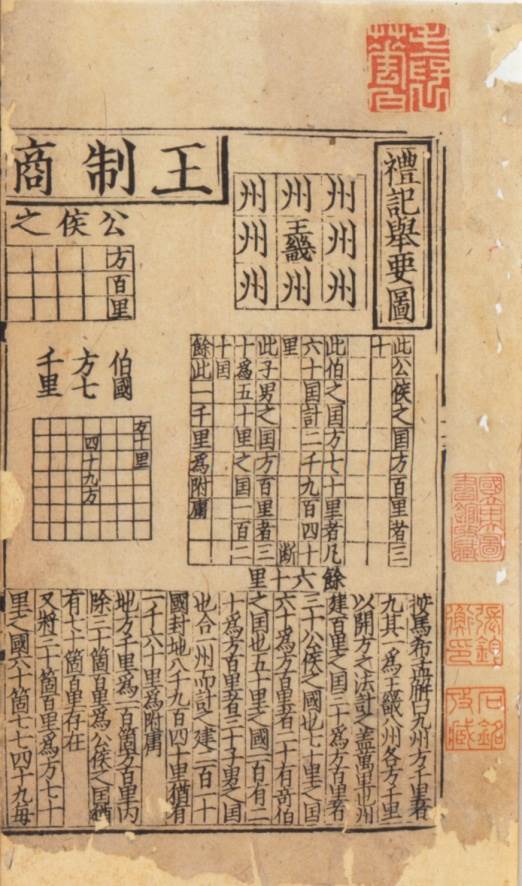 禮記舉要圖
州州州
州王畿州
州州州
王制商
公侯之
方百里
伯國
方七
千里
四十九方
此公侯之国方百里者三
十
此伯之国方七十里者凡
六十国計二千九百四十
里
此子男之国方百里者三
十為五十里之国一百二
十国
餘此一千里為附庸
斷
餘六十里
按馬希孟解曰九州方千里者
九其一為王畿八州各方千里
以開方之法計之蓋萬里也州
建百里之国三十為方百里者
三十公侯之國也七十里之国
六十為方百里者二十有奇伯
之国也五十里之國一百有二
十為方百里者三十子男之国
也合一州而計之建二百一十
國封地八千九百四十里猶有
一千六十里為附庸
地方千里為一百箇方百里内
除三十箇百里為公侯之国猶
有七十箇百里存在
又將三十箇百里為方七十
里之國六十箇七七四十九每
石銘
收藏